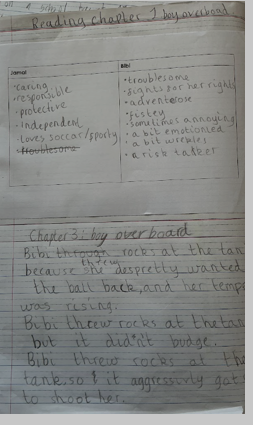 Reading chapter 1 boy overboard
Jamal
Bibi
• caring
• responsible
• protective
• independent
• loves soccar/sporty
• troublesome
• troublesome
• fights for her rights
• adventerose
• fistey
• sometimes annoying
• a bit emotionled
• a bit
• a risk talker
Chapter 3: boy overboard
Bibi through rocks at the tank
threw
because she despretly wanted
the ball back, and her temper
was rising.
Bibi threw rocks at the tank
but it didn't budge.
Bibi threw rocks at the
tank, so it aggressivly got
to shoot her.